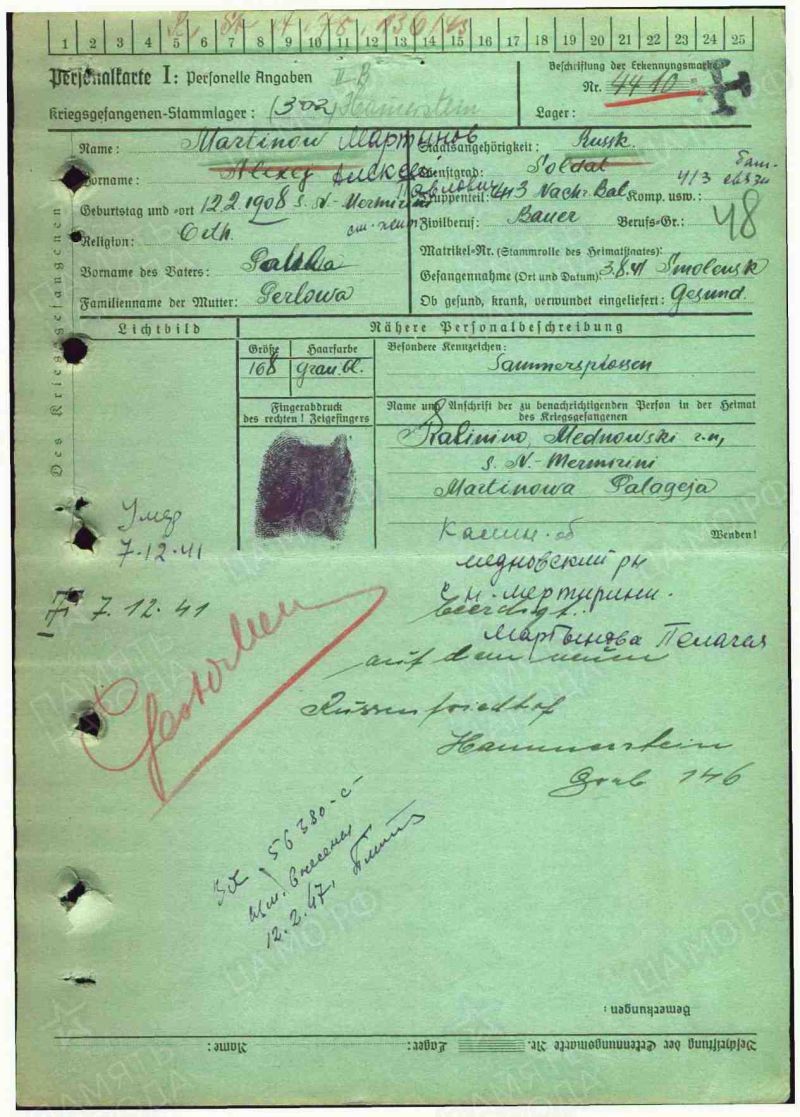 1 2 3 4 5 6 7 8 9 10 11 12 13 14 15 16 17 18 19 20 21 22 23 24 25
Personalkarte I: Personelle Angaben II B
Kriegsgefangenen-Stammlager: (302) Hamerstein
Beschriftung der Erkennungsmarke
Nr. 4410
Lager:
Des Kriegsgefangenen
Name: Martinow Мартынов
Vorname: Alexej Алексей Павлович
Geburtstag und -ort 12.2.1908 s. N-Mermirini
Religion: Orth.
Vorname des Vaters:
Familienname der Mutter: Perlowa
Staatsangehörigkeit: Russk.
Dienstgrad: Soldat
Truppenteil: 413 Nachr. Bat Komp. usw.: 413 бат. связи
Zivilberuf: Bauer Berufs-Gr.: 48
Matrikel-Nr. (Stammrolle des Heimatstaates):
Gefangennahme (Ort und Datum): 3.8.41 Smolensk
Ob gesund, krank, verwundet eingeliefert: Gesund.
Lichtbild
Nähere Personalbeschreibung
Größe Haarfarbe
168 Grau.bl.
Besondere Kennzeichen:
Sammersprossen
Fingerabdruck
des rechten! Zeigefingers
Name und Anschrift der zu benachrichtigenden Person in der Heimat
des Kriegsgefangenen
Kalinino, Mednowski r-n,
s. N-Mermirini
Martinowa Palageja
Wenden!
Умер
7.12.41
Калин. об
медновский рн
с н. мертурини.
Мартынова Пелагея
7. 12. 41
Gestorben
beerdigt
auf dem neuen
Russenfriedhof
Hammerstein
Grab 146
56380-с
изм. внесены
12.2.47.
Bemerkungen:
Name: Lager: Beschriftung der Erkennungsmarke Nr.
ПАМЯТЬ НАРОДА
ЦАМО РФ